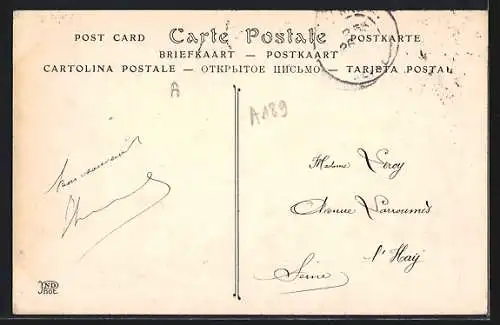 POST CARD Carte Postale POSTKARTE
BRIEFKAART — POSTKAART
CARTOLINA POSTALE — ОТКРЫТОЕ ПИСЬМО — TARJETA POSTAL
A
A189
Bon souvenir
Madame Leroy
Avenue Larroumès
l'Haÿ
Seine
ND
Phot.